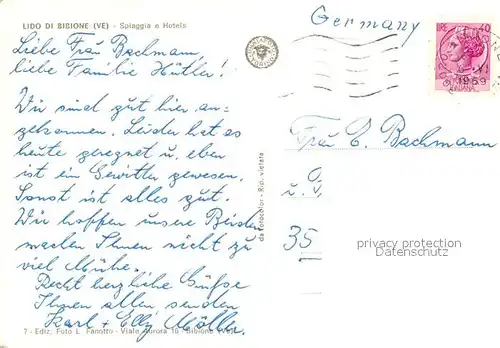 LIDO DI BIBIONE (VE) - Spiaggia e Hotels
Liebe Frau Bachmann
liebe Familie Hütler!
Wir sind gut hier an-
gekommen. Leider hat es
heute geregnet u. eben
ist ein Gewitter gewesen.
Sonst ist alles gut.
Wir hoffen unsere Beiden
machen Ihnen nicht zu
viel Mühe.
Recht herzliche Grüße
Ihnen allen senden
Karl + Elly Möller.
7 - Ediz. Foto L. Fanotto - Viale Aurora 16 - Bibione (Ve)
da Fotocolor - Rip. vietata
Germany
40
1969
Frau E. Bachmann
u.
35
privacy protection
AnsichtskartenHandel.de